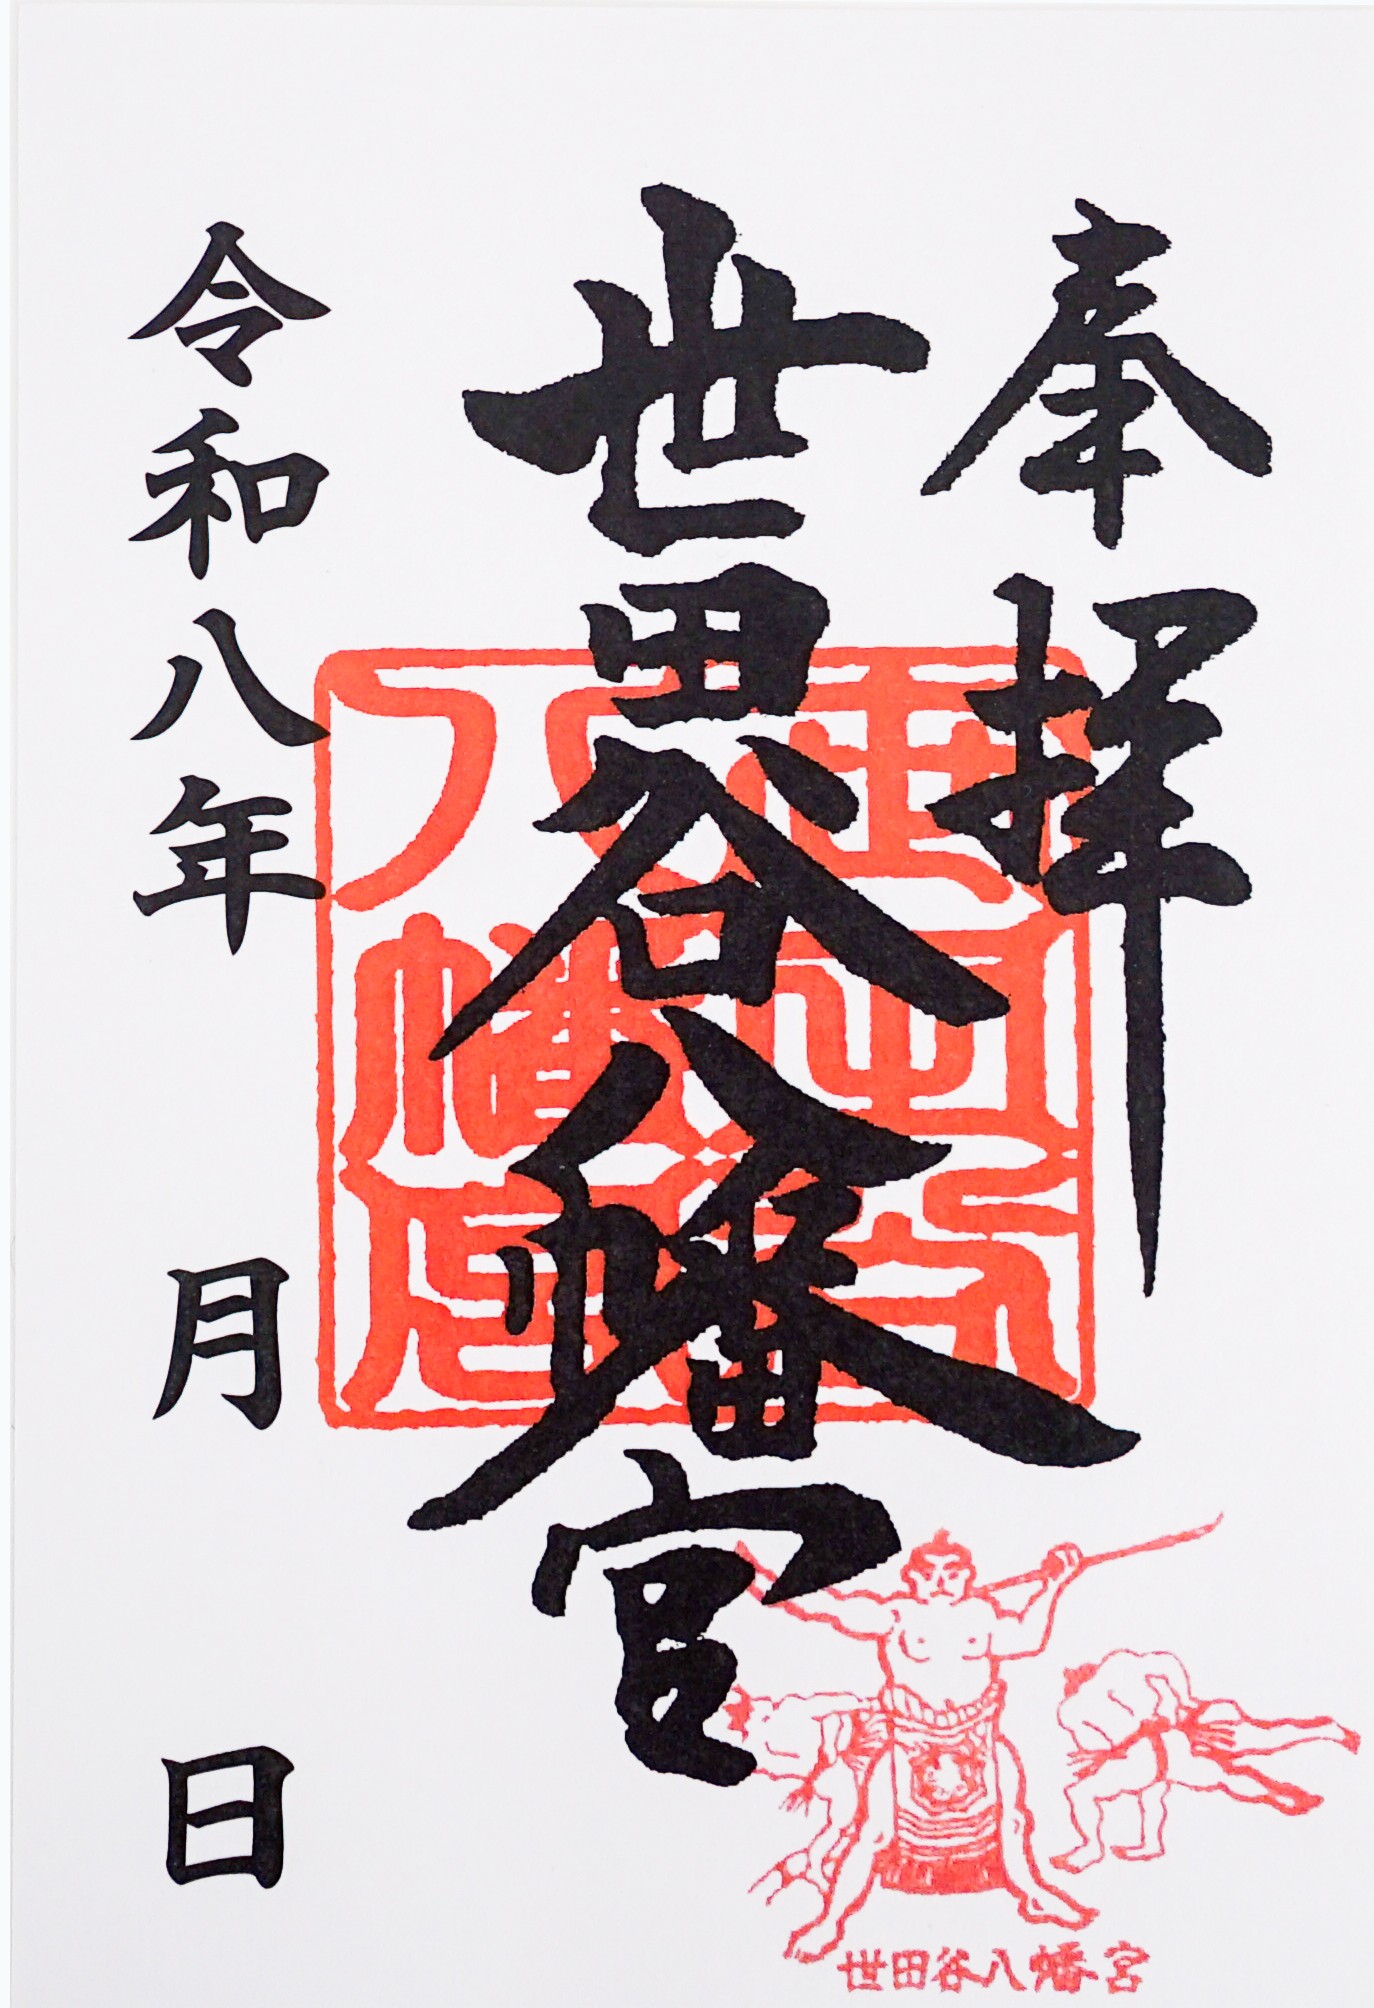 奉拝
世田谷八幡宮
世田谷八幡宮
令和八年 月 日
世田谷八幡宮